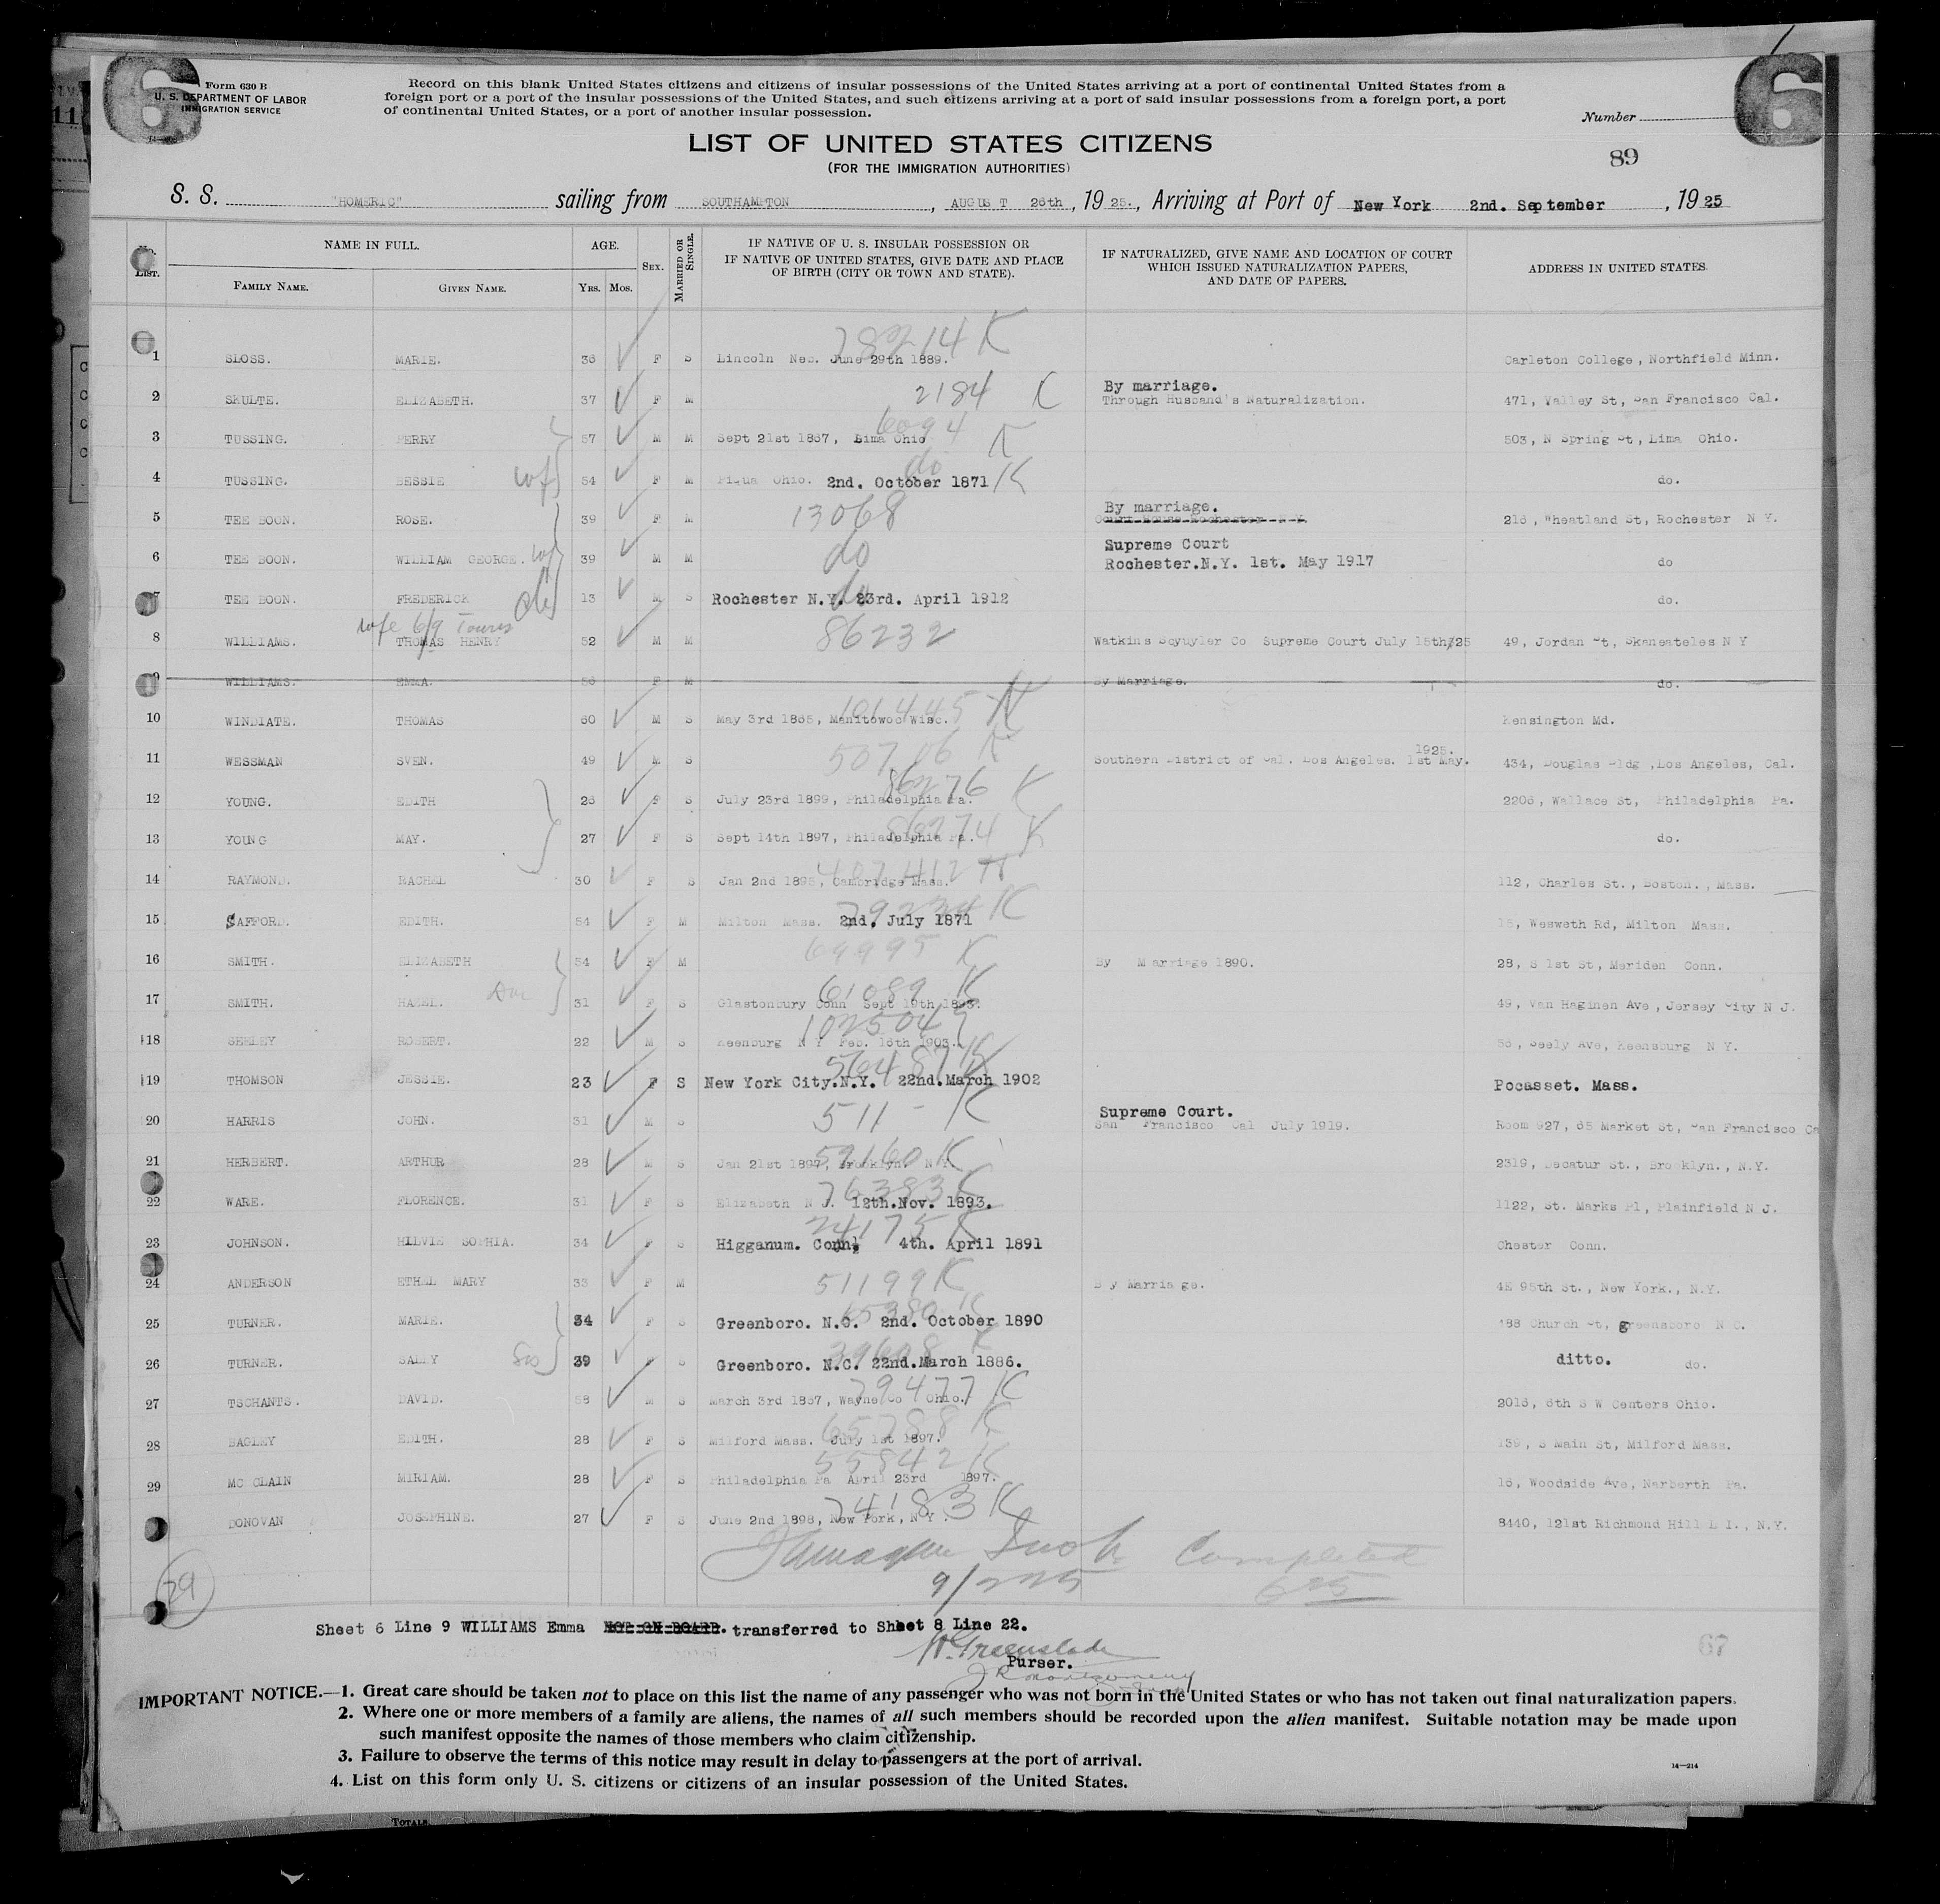 6
6
Form 630 B
U. S. DEPARTMENT OF LABOR
IMMIGRATION SERVICE
Record on this blank United States citizens and citizens of insular possessions of the United States arriving at a port of continental United States from a
foreign port or a port of the insular possessions of the United States, and such citizens arriving at a port of said insular possessions from a foreign port, a port
of continental United States, or a port of another insular possession.
Number
LIST OF UNITED STATES CITIZENS
(FOR THE IMMIGRATION AUTHORITIES)
89
S. S. "HOMERIC" sailing from SOUTHAMPTON, AUGUST 26th, 1925., Arriving at Port of New York 2nd. September, 1925
No. LIST. NAME IN FULL. FAMILY NAME. GIVEN NAME. AGE. YRS. MOS. SEX. MARRIED OR SINGLE.
IF NATIVE OF U. S. INSULAR POSSESSION OR
IF NATIVE OF UNITED STATES, GIVE DATE AND PLACE
OF BIRTH (CITY OR TOWN AND STATE).
IF NATURALIZED, GIVE NAME AND LOCATION OF COURT
WHICH ISSUED NATURALIZATION PAPERS,
AND DATE OF PAPERS.
ADDRESS IN UNITED STATES.
78214 K
1 SLOSS. MARIE. 36 F S Lincoln Neb. June 29th 1889. Carleton College, Northfield Minn.
2184 K By marriage.
2 SKULTE. ELIZABETH. 37 F M Through Husband's Naturalization. 471, Valley St, San Francisco Cal.
6094 K
3 TUSSING. PERRY 57 M M Sept 21st 1867, Lima Ohio 503, N Spring St, Lima Ohio.
do
4 TUSSING. BESSIE wf 54 F M Piqua Ohio. 2nd. October 1871 K do.
By marriage.
5 TEE BOON. ROSE. 39 F M 13068 Court House Rochester N.Y. 216, Wheatland St, Rochester N Y.
Supreme Court
6 TEE BOON. WILLIAM GEORGE. 39 M M do Rochester.N.Y. 1st. May 1917 do
7 TEE BOON. FREDERICK ch 13 M S Rochester N.Y. 23rd. April 1912 do.
wife 6/9
8 WILLIAMS. THOMAS HENRY 52 M M 86232 Watkins Scyuyler Co Supreme Court July 15th/25 49, Jordan St, Skaneateles N Y
9 WILLIAMS. EMMA. 56 F M By Marriage. do.
101445 K
10 WINDIATE. THOMAS 60 M S May 3rd 1865, Manitowoc Wisc. Kensington Md.
1925.
11 WESSMAN SVEN. 49 M S 50706 K Southern District of Cal. Los Angeles. 1st May. 434, Douglas Bldg ,Los Angeles, Cal.
86276 K
12 YOUNG. EDITH 26 F S July 23rd 1899, Philadelphia Pa. 2206, Wallace St, Philadelphia Pa.
86274 K
13 YOUNG MAY. 27 F S Sept 14th 1897, Philadelphia Pa. do.
14 RAYMOND. RACHEL 30 F S Jan 2nd 1895, Cambridge Mass. 112, Charles St., Boston., Mass.
79234 K
15 SAFFORD. EDITH. 54 F M Milton Mass. 2nd. July 1871 Milton Mass.
16 SMITH. ELIZABETH 54 F M 69995 K By Marriage 1890. 28, S 1st St, Meriden Conn.
61089 K
17 SMITH. HAZEL. Dau 31 F S Glastonbury Conn Sept 19th 1893. 49, Van Haginen Ave, Jersey City N J.
18 SEELEY ROBERT. 22 M S Keenburg N Y Feb. 16th 1903. Seely Ave, Keensburg N Y.
56487 K
19 THOMSON JESSIE. 23 F S New York City.N.Y. 22nd.March 1902 Pocasset. Mass.
Supreme Court.
20 HARRIS JOHN. 31 M S 511 - K San Francisco Cal July 1919. Room 927, 65 Market St, San Francisco Ca
59160 K
21 HERBERT. ARTHUR 28 M S Jan 21st 1897, Brooklyn. N Y. 2319, Decatur St., Brooklyn., N.Y.
76383 K
22 WARE. FLORENCE. 31 F S Elizabeth N J. 12th.Nov. 1893. 1122, St. Marks Pl, Plainfield N J.
24175 K
23 JOHNSON. HILVIE SOPHIA. 34 F S Higganum. Conn. 4th. April 1891 Chester Conn.
24 ANDERSON ETHEL MARY 33 F M 51199 K By Marriage. 4E 95th St., New York., N.Y.
65380 K
25 TURNER. MARIE. 34 F S Greenboro. N.C. 2nd. October 1890 188 Church St, greensboro N C.
39608 K
26 TURNER. SALLY Sis 39 F S Greenboro. N.C. 22nd.March 1886. ditto. do.
79477 K
27 TSCHANTS. DAVID. 58 M S March 3rd 1867, Wayne Co Ohio. 2013, 6th S W Centers Ohio.
65788 K
28 BAGLEY EDITH. 28 F S Milford Mass. July 1st 1897. 139, S Main St, Milford Mass.
55842 K
29 MC CLAIN MIRIAM. 28 F S Philadelphia Pa April 23rd 1897. 16, Woodside Ave, Narberth Pa.
74183 K
DONOVAN JOSEPHINE. 27 F S June 2nd 1898, New York, N Y. 8440, 121st Richmond Hill L I., N.Y.
Completed
29
Sheet 6 Line 9 WILLIAMS Emma NOT ON BOARD. transferred to Sheet 8 Line 22.
W. Greenslade
Purser.
67
IMPORTANT NOTICE.—1. Great care should be taken not to place on this list the name of any passenger who was not born in the United States or who has not taken out final naturalization papers.
2. Where one or more members of a family are aliens, the names of all such members should be recorded upon the alien manifest. Suitable notation may be made upon
such manifest opposite the names of those members who claim citizenship.
3. Failure to observe the terms of this notice may result in delay to passengers at the port of arrival.
4. List on this form only U. S. citizens or citizens of an insular possession of the United States.
14—214
TOTALS.